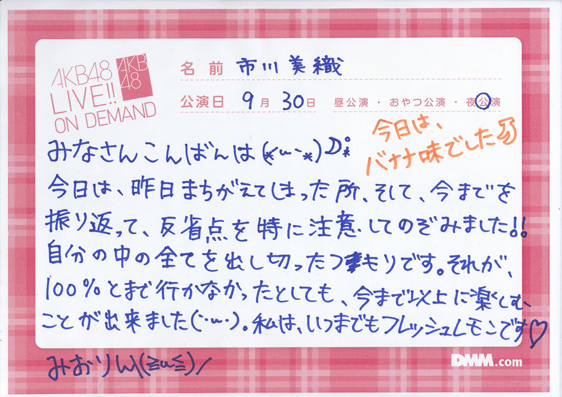 AKB48
LIVE!!
ON DEMAND
AKB
48
名前 市川美織
公演日 9月30日 昼公演・おやつ公演・夜公演
今日は、
バナナ味でした
みなさんこんばんは(*･ω･*)
今日は、昨日まちがえてしまった所、そして、今までを
振り返って、反省点を特に注意してのぞみました!!
自分の中の全てを出し切ったつもりです。それが、
100%とまで行かなかったとしても、今まで以上に楽しむ
ことが出来ました(･ω･)。私は、いつまでもフレッシュレモンです♡
みおりん\(≧ω≦)/
DMM.com